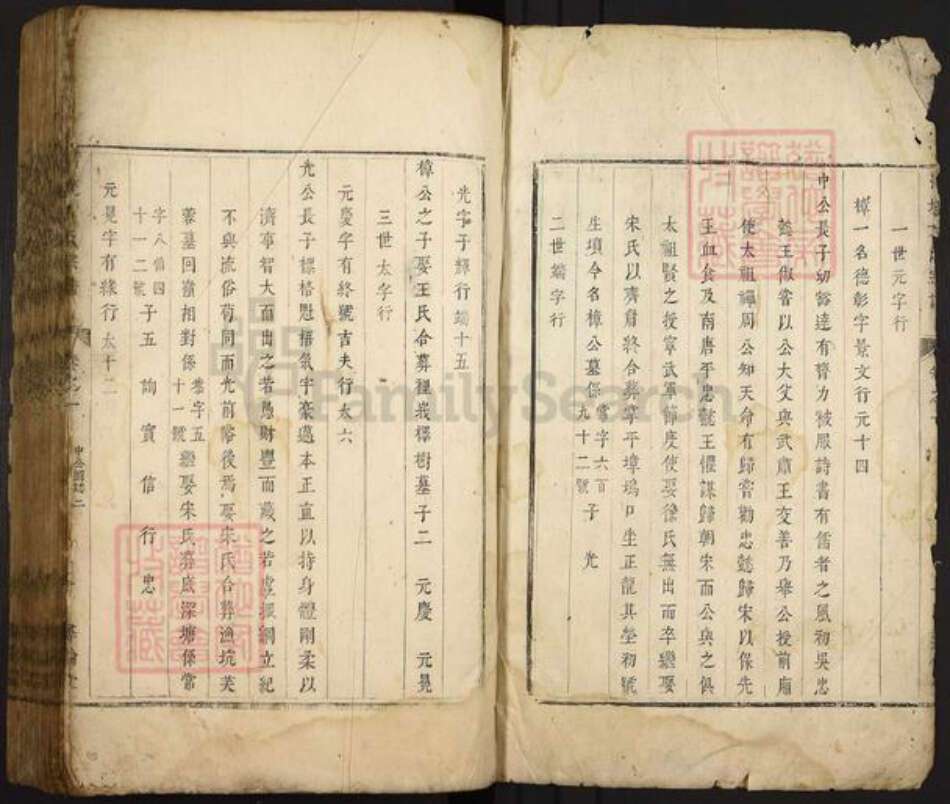 一世元字行
樟一名德彰字景文行元十四
中公長子幼豁達有膂力被服詩書有儒者之風初吳忠
懿王俶嘗以公大父與武肅王交善乃舉公授前廂
使太祖禪周公知天命有歸嘗勸忠懿歸宋以保先
王血食及南唐平忠懿王懼謀歸朝宋而公與之俱
太祖賢之授寧武軍節度使娶徐氏無出而卒繼娶
宋氏以齊肅將合葬章平璋塢口坐正龍其塋初號
生項今名樟公墓係常字六百九十二號 子 光
二世端字行
光字子輝行端十五
樟公之子娶王氏合葬裡峩樨樹墓子二 元慶 元晃
三世太字行
元慶字有終號吉夫行太六
光公長子標格魁梧氣宇豪邁本正直以持身體剛柔以
濟事智大而出之若愚財豐而藏之若虛振綱立紀
不與流俗苟同而光前裕後焉娶朱氏合葬漁坑芙
蓉墓回巒相對係恭字五十一號繼娶宋氏葬底深塘係常
字八佰四十一二號 子五 詢 實 信 行 忠
元晃字有緣行太十二
卷之一
FamilySearch